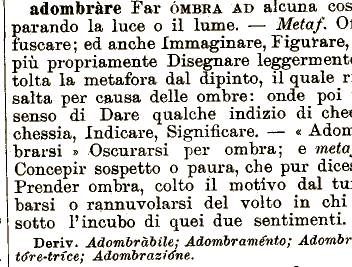 adombràre Far ÓMBRA AD alcuna cos
parando la luce o il lume. — Metaf. Of
fuscare; ed anche Immaginare, Figurare,
più propriamente Disegnare leggermente
tolta la metafora dal dipinto, il quale ri
salta per causa delle ombre: onde poi
senso di Dare qualche indizio di chec
chessia, Indicare, Significare. — « Adom
brarsi » Oscurarsi per ombra; e meta
Concepir sospetto o paura, che pur dices
Prender ombra, colto il motivo dal tur
barsi o rannuvolarsi del volto in chi
sotto l'incubo di quei due sentimenti.
Deriv. Adombràbile; Adombraménto; Adombra
tóre-tríce; Adombrazióne.